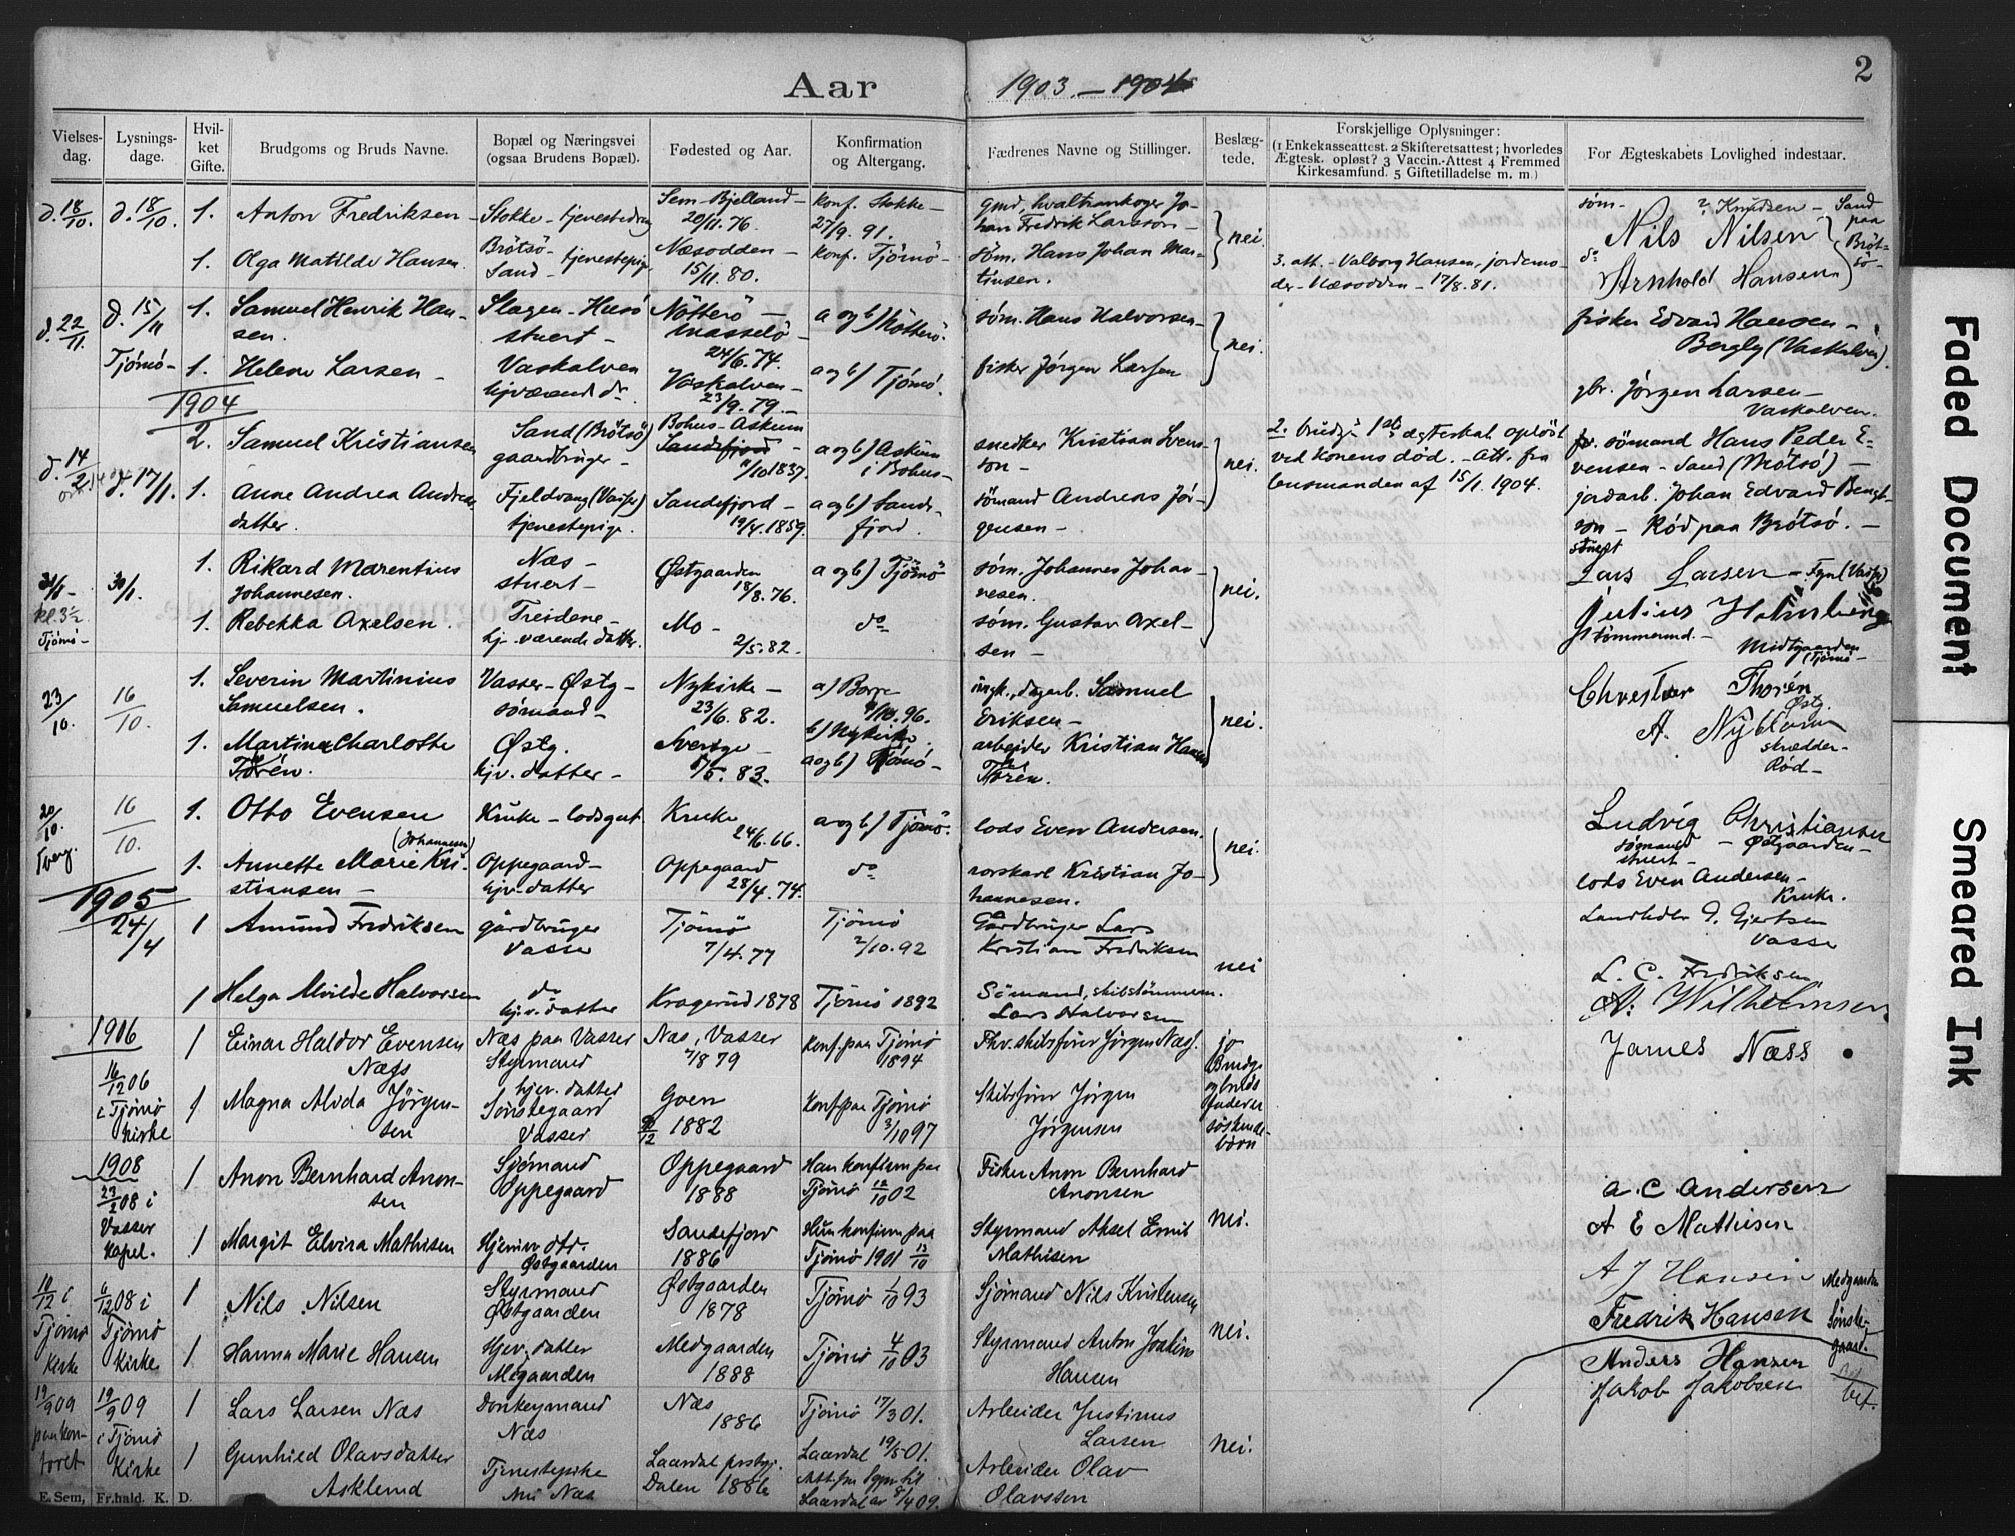 Aar
1903. — 1904
2
Vielses-
dag.
Lysnings-
dage.
Hvil-
ket
Gifte.
Brudgoms og Bruds Navne.
Bopæl og Næringsvei
(ogsaa Brudens Bopæl).
Fødested og Aar.
Konfirmation
og Altergang.
Fædrenes Navne og Stillinger.
Beslæg-
tede.
Forskjellige Oplysninger:
(1 Enkekasseattest. 2 Skifteretsattest; hvorledes
Ægtesk. opløst? 3 Vaccin.-Attest 4 Fremmed
Kirkesamfund. 5 Giftetilladelse m. m.)
For Ægteskabets Lovlighed indestaar.
d. 18/10.
d. 18/10.
1.
Anton Fredriksen
Stokke - tjenestedreng
Sem - Bjelland -
20/11. 76.
Konf. Stokke -
27/9. 91.
gmd, hvaltrankoger Jo-
han Fredrik Larsson -
nei.
søm. ? Knudsen - Sand
Nils Nilsen
paa
Brøt-
sø -
1.
Olga Matilde Hansen.
Brøtsø -
Sand - tjenestepige
Næsodden -
15/11. 80.
Konf. Tjømø -
søm. Hans Johan Mar-
tinsen.
3. att. - Valborg Hansen, jordemo-
der - Næsodden - 17/8. 81.
do
Arnhold Hansen
d. 22/11.
d. 15/11
Tjømø -
1.
Samuel Henrik Han-
sen.
Slagen - Husø
stuert -
Nøtterø -
24/6. 74.
a og b) Nøtterø.
søm. Hans Halvorsen -
nei.
fisker Edvard Hansen -
Bergly (Vaskalven).
1.
Helene Larsen -
Vaskalven
hjværende dr.
Vaskalven -
23/9. 79. -
a og b) Tjømø.
fisker Jørgen Larsen
gbr. Jørgen Larsen -
Vaskalven.
1904
d. 14/2
d. 17/1.
2.
Samuel Kristiansen
Sand (Brøtsø)
gaardbruger -
Bohus - Askum
Sandefjord -
/10 1837.
a og b) Askum
i Bohus -
snedker Kristian Svens-
son -
nei.
2. brudg. 1ste ægteskab opløst
ved konens død. - Att. fra
lensmanden af 15/1. 1904.
sømand Hans Peder E-
vensen - Sand (Brøtsø) -
1.
Anne Andrea Andreas-
datter.
Fjeldvang (Vasser)
tjenestepige.
Sandefjord -
19/4. 1859.
a og b) Sande-
fjord.
sømand Andreas Jør-
gensen -
jordarb. Johan Edvard Bengt-
son - Rød paa Brøtsø. -
31/1 -
kl. 3½
Tjømø -
30/1.
1.
Rikard Marentius
Johannesen.
Næs -
stuert -
Østgaarden
18/8. 76.
a og b) Tjømø
søm. Johannes Johan-
nesen.
nei.
stuert
Lars Larsen - Fyn (Vasser)
1.
Rebekka Axelsen.
Treidene -
hj. værende datter.
Mo -
2/5. 82.
do
søm. Gustav Axel-
sen -
Julius Holmberg
tømmermd. -
Midtgaarden
(Tjømø -
23/10.
16/10.
1.
Severin Martinius
Samuelsen.
Vasser - Østg -
sømand -
Nykirke -
23/6. 82.
a) Borre
/10. 96.
b) Nykirke
dagarb. Samuel
Eriksen -
nei.
Chrestian Thorén
Østg.
1.
Martine Charlotte
Torén.
Østg.
hjv. datter -
Sverige -
/5. 83.
a og b) Tjømø -
arbeider Kristian Hansen
Torén.
A. Nyblom
skrædder -
Rød -
20/10.
16/10.
1.
Otto Evensen
Kruke - lodsgut
Kruke
24/6. 66.
a og b) Tjømø.
lods Even Andersen.
nei.
Ludvig Christiansen
sømand - Østgaarden -
stuert -
1.
(Johannesen)
Annette Marie Kri-
stiansen -
Oppegaard -
hjv. datter
Oppegaard
28/4. 74.
do
rorskarl Kristian Jo-
hannesen.
lods Even Andersen -
Kruke.
1905
24/4
1
Amund Fredriksen
gårdbruger
Vasser
Tjømø
7/4. 77
Tjømø
2/10. 92
Gårdbruger Lars
Kristian Fredriksen
nei
Gjertsen
Vasser
L. C. Fredriksen
1
Helga Alvilde Halvorsen
do
hjv. datter
Kragerud 1878
Tjømø 1892
Sømand, skibstømmerm.
Lars Halvorsen
A. Wilhelmsen
1906
16/12 06
i Tjømø
Kirke
1
Einar Haldor Evensen
Næss
Næs paa Vasser
Styrmand
Næs, Vasser
/8 79
Konf. paa Tjømø
1894
Fhv. skibsfører Jørgen Næss.
jo
Brudgs
og bruds
fædre er
søskende-
børn
James Næss
1
Magna Alvida Jørgen-
sen
hjev. datter
Sønstegaard
Vasser
Goen
1882
Konf. paa Tjømø
3/10 97
Skibsfører Jørgen
Jørgensen
1908
23/2 08 i
Vasser
Kapel.
1
Anon Bernhard Anon-
sen
Sjømand
Oppegaard
Oppegaard
1888
Han konfirm paa
Tjømø 12/10 02
Fisker Anon Bernhard
Anonsen
nei.
A. C Andersen
1
Margit Elvira Mathisen
Hjemv. dtr.
Østgaarden
Sandefjord
1886
Hun konfirm paa
Tjømø 1901 13/10
Styrmand Aksel Emil
Mathisen
A E Mathisen
10/12 i
Tjømø
Kirke
6/12 08 i
Tjømø
Kirke
1
Nils Nilsen
Styrmand
Østgaarden
Østgaarden
1878
Tjømø 1/10 93
Sjømand Nils Kristensen
nei.
A J Hansen
Medgaarden
Fredrik Hansen
Sønste-
gaard.
1
Hanna Marie Hansen
Hjev. datter
Megaarden
Medgaarden
1888
Tjømø 4/10 03
Styrmand Anton Joakim
Hansen
Anders Hansen
Jakob Jakobsen
19/9 09
paa kon-
toret
19/9 09
i Tjømø
Kirke
1
Lars Larsen Næs
Donkeymand
Næs
Næs
1886
Tjømø 17/3 01.
Arbeider Justinus
Larsen
nei.
1
Gunhild Olavsdatter
Asklund
Tjenestepike
Næs
Laardal prstgj.
Dalen 1886
Laardal 19/5 01.
Laardal av 8/4 09.
Arbeider Olav
Olavssen
E. Sem, Fr.hald. K. D.
Faded Document
Smeared Ink